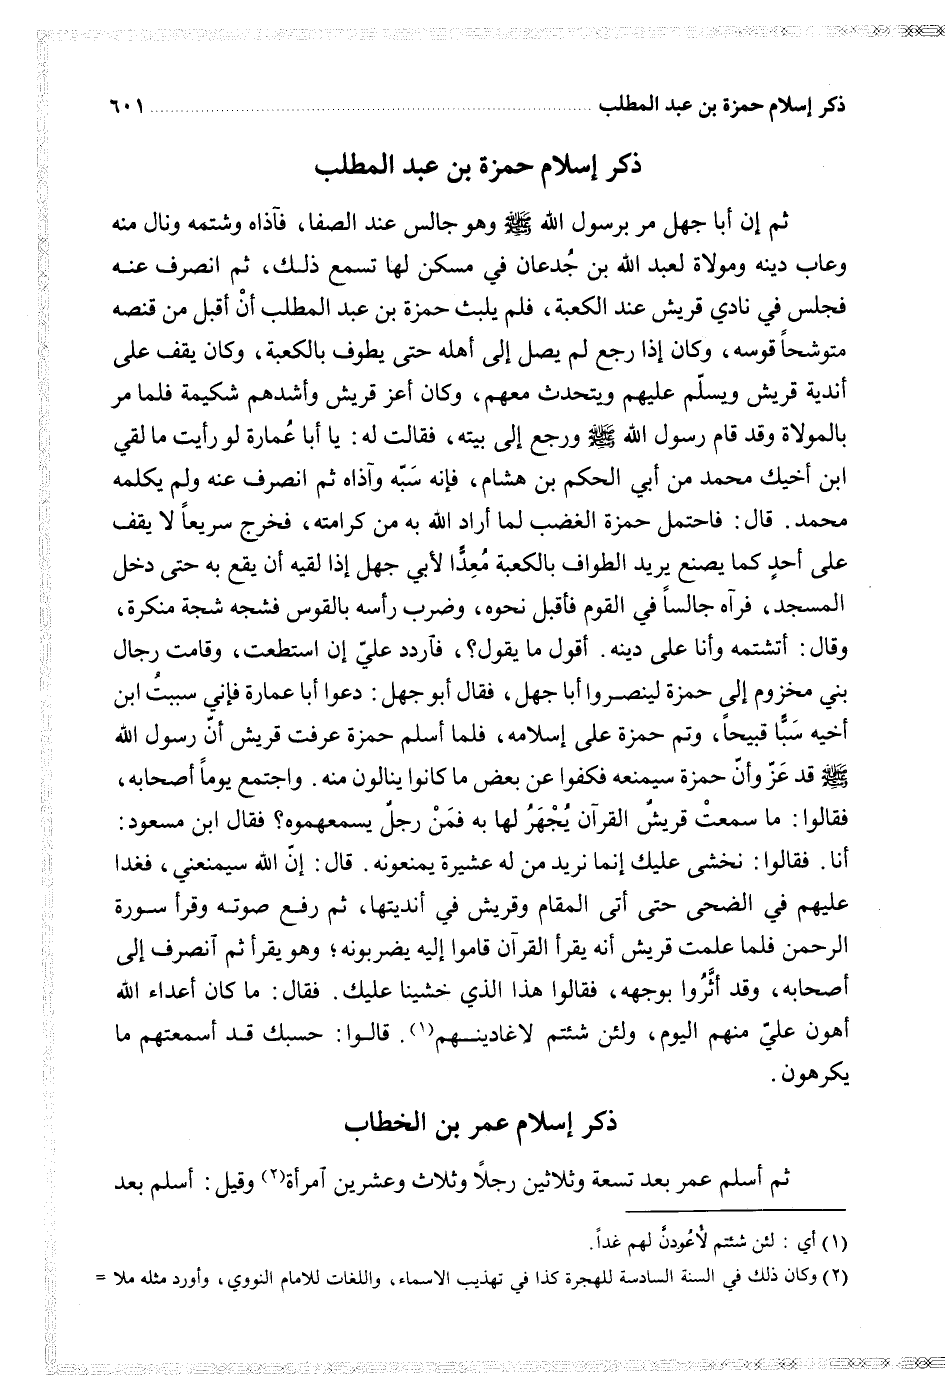 ذكر إسلام حمزة بن عبد المطلب ........................................ ٦٠١
ذكر إسلام حمزة بن عبد المطلب
ثم إن أبا جهل مر برسول الله ﷺ وهو جالس عند الصفا، فآذاه وشتمه ونال منه
وعاب دينه ومولاة لعبد الله بن جُدعان في مسكن لها تسمع ذلك، ثم انصرف عنه
فجلس في نادي قريش عند الكعبة، فلم يلبث حمزة بن عبد المطلب أنْ أقبل من قنصه
متوشحاً قوسه، وكان إذا رجع لم يصل إلى أهله حتى يطوف بالكعبة، وكان يقف على
أندية قريش ويسلّم عليهم ويتحدث معهم، وكان أعز قريش وأشدهم شكيمة فلما مر
بالمولاة وقد قام رسول الله ﷺ ورجع إلى بيته، فقالت له: يا أبا عُمارة لو رأيت ما لقي
ابن أخيك محمد من أبي الحكم بن هشام، فإنه سَبّه وآذاه ثم انصرف عنه ولم يكلمه
محمد. قال: فاحتمل حمزة الغضب لما أراد الله به من كرامته، فخرج سريعاً لا يقف
على أحدٍ كما يصنع يريد الطواف بالكعبة مُعِدًّا لأبي جهل إذا لقيه أن يقع به حتى دخل
المسجد، فرآه جالساً في القوم فأقبل نحوه، وضرب رأسه بالقوس فشجه شجة منكرة،
وقال: أتشتمه وأنا على دينه. أقول ما يقول؟، فآردد عليّ إن استطعت، وقامت رجال
بني مخزوم إلى حمزة لينصروا أبا جهل، فقال أبو جهل: دعوا أبا عمارة فإني سببتُ ابن
أخيه سَبًّا قبيحاً، وتم حمزة على إسلامه، فلما أسلم حمزة عرفت قريش أنّ رسول الله
ﷺ قد عَزّ وأنّ حمزة سيمنعه فكفوا عن بعض ما كانوا ينالون منه. واجتمع يوماً أصحابه،
فقالوا: ما سمعتْ قريشٌ القرآن يُجْهَرُ لها به فمَنْ رجلٌ يسمعهموه؟ فقال ابن مسعود:
أنا. فقالوا: نخشى عليك إنما نريد من له عشيرة يمنعونه. قال: إنّ الله سيمنعني، فغدا
عليهم في الضحى حتى أتى المقام وقريش في أنديتها، ثم رفع صوته وقرأ سورة
الرحمن فلما علمت قريش أنه يقرأ القرآن قاموا إليه يضربونه؛ وهو يقرأ ثم آنصرف إلى
أصحابه، وقد أثَّرُوا بوجهه، فقالوا هذا الذي خشينا عليك. فقال: ما كان أعداء الله
أهون عليّ منهم اليوم، ولئن شئتم لاغادينهم(١). قالوا: حسبك قد أسمعتهم ما
يكرهون.
ذكر إسلام عمر بن الخطاب
ثم أسلم عمر بعد تسعة وثلاثين رجلاً وثلاث وعشرين آمرأة(٢) وقيل: أسلم بعد
(١) أي : لئن شئتم لأعُودنَّ لهم غداً.
(٢) وكان ذلك في السنة السادسة للهجرة كذا في تهذيب الاسماء، واللغات للامام النووي، وأورد مثله ملا =